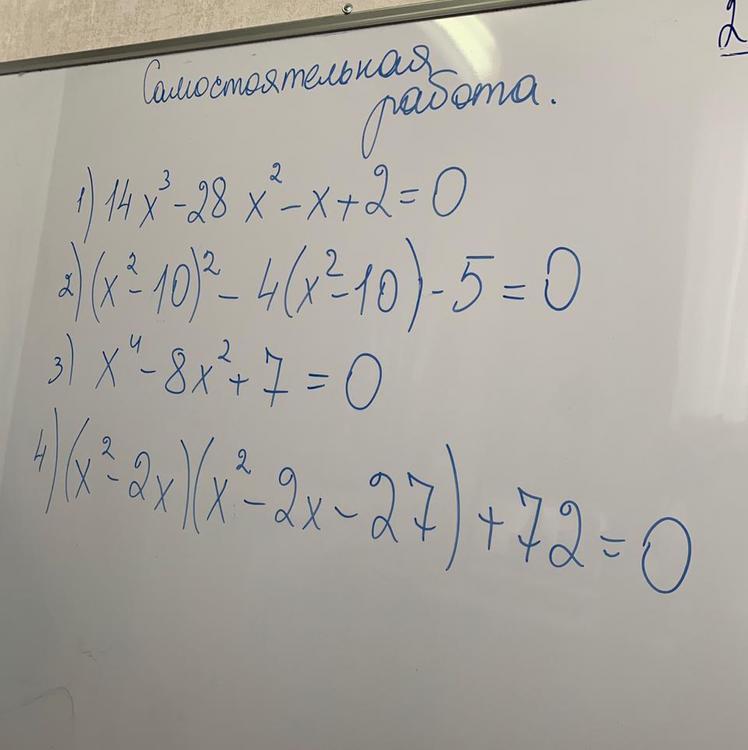 2
Самостоятельная
работа.
1) 14x³-28x²-x+2=0
2) (x²-10)²-4(x²-10)-5=0
3) x⁴-8x²+7=0
4) (x²-2x)(x²-2x-27)+72=0